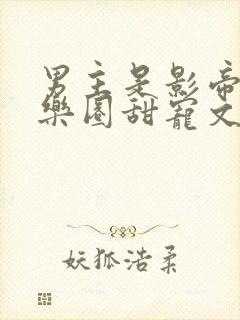 男主是影帝
樂園甜寵文
妖狐浩柔